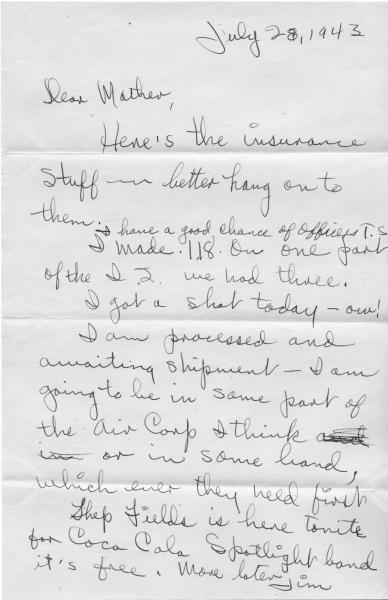 July 28, 1943
Dear Mother,
Here's the insurance
stuff — better hang on to
them.
I have a good chance of Officers T.S
I made 118. On one part
of the I.Q. we had three.
I got a shot today — ow!
I am processed and
awaiting shipment — I am
going to be in some part of
the Air Corp I think and
in or in some band,
which ever they need first
Shep Fields is here tonite
for Coca Cola Spotlight band
it's free. More later Jim